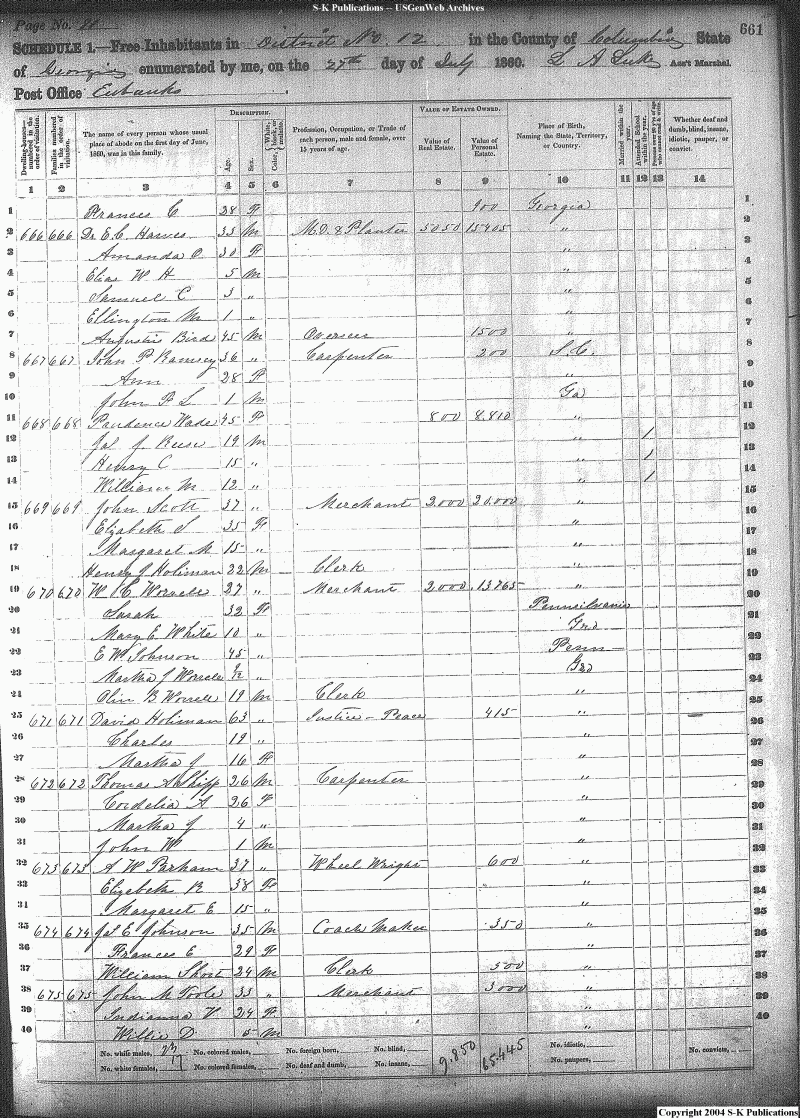 S-K Publications -- USGenWeb Archives
Page No. 661
SCHEDULE 1.—Free Inhabitants in District No. 12 in the County of Columbia State
of Georgia enumerated by me, on the 27th day of July 1860. L A Luke Ass't Marshal.
Post Office Eubanks
Dwelling-houses—numbered in the order of visitation. Families numbered in the order of visitation. The name of every person whose usual place of abode on the first day of June, 1860, was in this family. DESCRIPTION. Age. Sex. Color, White, black, or mulatto. Profession, Occupation, or Trade of each person, male and female, over 15 years of age. VALUE OF ESTATE OWNED. Value of Real Estate. Value of Personal Estate. Place of Birth, Naming the State, Territory, or Country. Married within the year. Attended School within the year. Persons over 20 y'rs of age who cannot read & write. Whether deaf and dumb, blind, insane, idiotic, pauper, or convict.
1 2 3 4 5 6 7 8 9 10 11 12 13 14
1 Frances C 28 F 900 Georgia 1
2 666 666 Dr E. C. Hawes 33 M M.D. & Planter 5050 15405 " 2
3 Amanda O. 30 F " 3
4 Elias W H 5 M " 4
5 Samuel C 3 " " 5
6 Ellington M 1 " " 6
7 Augustus Bird 45 M Overseer 1500 " 7
8 667 667 John P Ramsey 36 " Carpenter 200 S.C. 8
9 Ann 28 F " 9
10 John P L 1 M Ga 10
11 668 668 Prudence Wade 45 F 800 8.810 " 11
12 Jas J. Reese 19 M " 1 12
13 Henry C 15 " " 1 13
14 William M 12 " " 1 14
15 669 669 John Scott 37 " Merchant 2.000 20.000 " 15
16 Elizabeth S 35 F " 16
17 Margaret M 15 " " 17
18 Henry J Holiman 22 M Clerk " 18
19 670 670 W. C. Worrell 27 " Merchant 2.000 13765 " 20
20 Sarah 32 F Pennsilvania 21
21 Mary E. White 10 " Geo
22 E W Johnson 45 " Penn 22
23 Martha J Worrell " Geo 23
24 Olin B Worrell 19 M Clerk " 25
25 671 671 David Holiman 63 " Justice - Peace 415 " 26
26 Charles 19 " "
27 Martha J 16 F " 27
28 672 672 Thomas A Shipp 26 M Carpenter " 28
29 Cordelia A 26 F " 29
30 Martha J 4 " " 30
31 John W 1 M " 31
32 673 673 A W Parham 37 " Wheel Wright 600 " 33
33 Elizabeth R 38 F " " 34
34 Margaret E 15 " " 35
35 674 674 Jas E Johnson 35 M Coach Maker 350 " 36
36 Frances E 29 F "
37 William Short 24 M Clerk 500 " 37
38 675 675 John M Toole 33 " Merchant 3000 " 38
39 Indianna V 24 F " 39
40 Willie D 5 M " 40
No. white males, 23 No. colored males, No. foreign born, No. blind, 9.850 65.445 No. idiotic, No. convicts,
No. white females, 17 No. colored females, No. deaf and dumb, No. insane, No. paupers,
Copyright 2004 S-K Publications